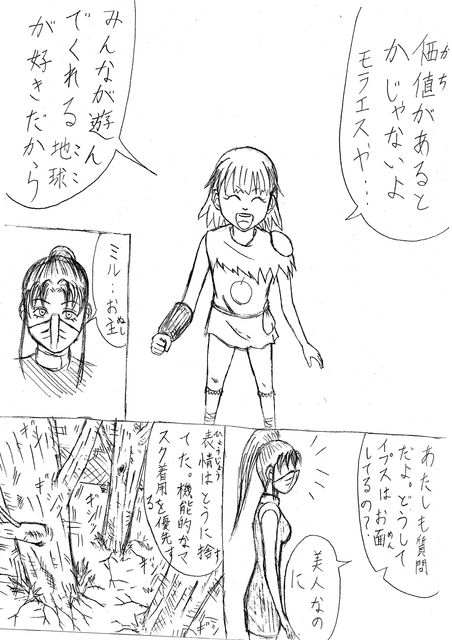 価値があると
かじゃないよ
モラエスや…
みんなが遊ん
でくれる地球
が好きだから
ミル…お主
あたしも質問
だよ。どうして
イプスはお面
してるの?
美人なの
に
表情はとうに捨
てた。機能的なマ
スク着用を優先す
る
ギシ
ギシッ
ギシ
ギシ